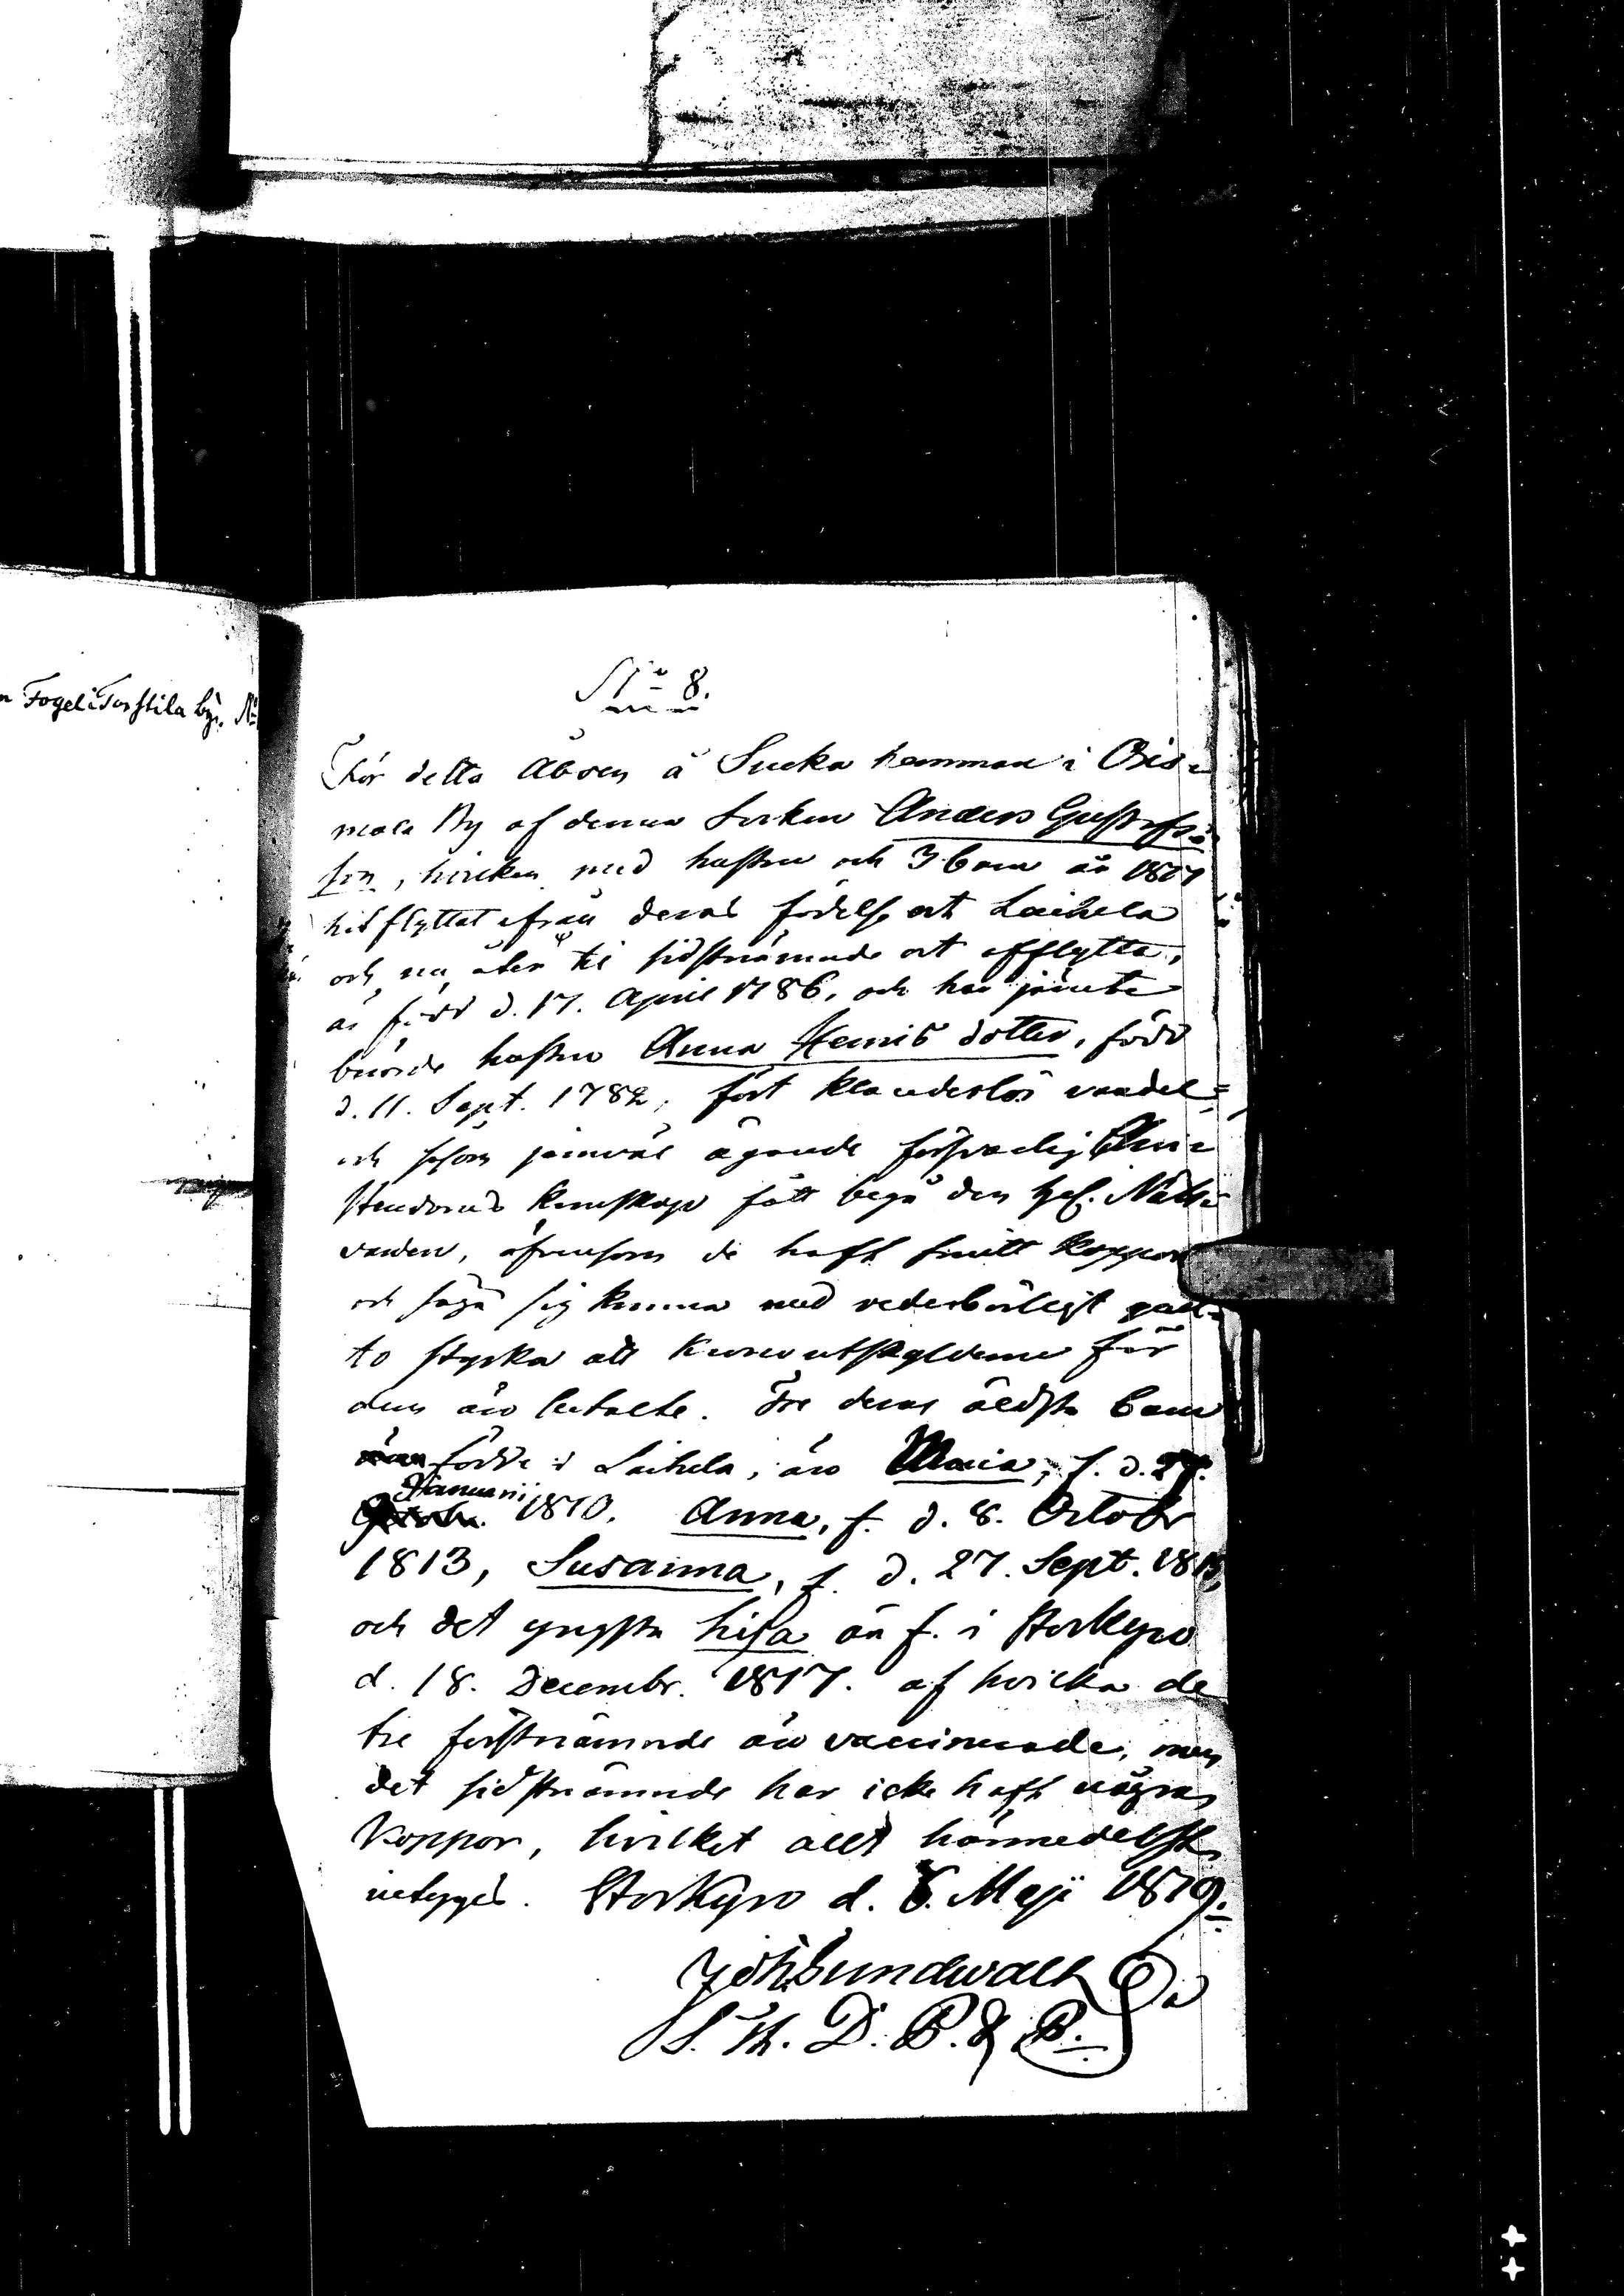 n Fogel i Torstila by. No
No 8.
För detta Åboen å Sucka hemman i Oris=
mala By af denna Sockn Anders Gustafs=
son, hvilken med hustru och 3 barn år 1817
hitflyttat ifrån deras födelse ort Laihela
och nu åter til sidstnämnde ort afflytta,
är född d. 17. April 1786, och har jämte
hustru Anna Henriksdotter, född
d. 11. Sept. 1782, fört klanderlös vandel,
och såsom jemväl ägande försvarlig Chri=
stendoms kunskap fått begå den hel. Natt=
varden, äfvensom de haft sina koppor
och säga sig kunna med vederbörligt qvit=
to styrka att Kronoutskylderne för
dem äro betalte. Tre deras äldsta barn
födde i Laihela, äro Maria, f. d. 27.
Januarii 1810. Anna, f. d. 8. Octobr
1813, Susanna, f. d. 27. Sept. 1815,
och det yngsta Lisa är f. i Storkyro
d. 18. Decembr. 1817. af hvilka de
tre förstnämnde äro vaccinerade, men
det sidstnämnde har icke haft några
koppor, hvilket allt härmedelst
intygas. Storkyro d. 6. Maji 1819.
Joh. Sundwall
S. Th. D. P. & P.